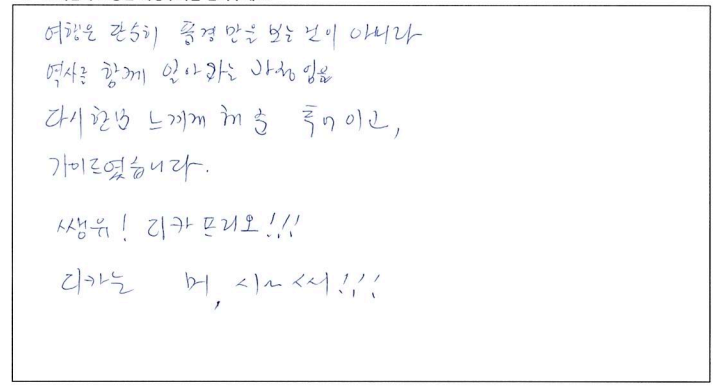 여행은 단순히 풍경만을 보는 것이 아니라
역사를 함께 알아가는 과정임을
다시한번 느끼게 해 준 투어이고,
가이드였습니다.
쌩유! 디카프리오!!!
디카는 머, 시~ 쓰!!!